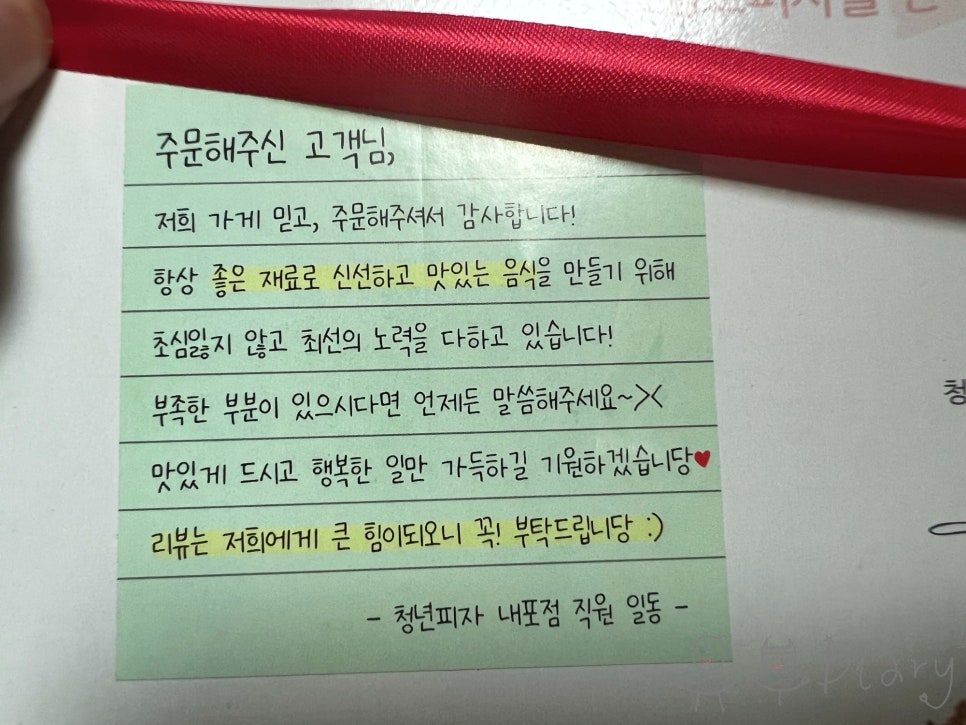 주문해주신 고객님,
저희 가게 믿고, 주문해주셔서 감사합니다!
항상 좋은 재료로 신선하고 맛있는 음식을 만들기 위해
초심잃지 않고 최선의 노력을 다하고 있습니다!
부족한 부분이 있으시다면 언제든 말씀해주세요~><
맛있게 드시고 행복한 일만 가득하길 기원하겠습니당♥
리뷰는 저희에게 큰 힘이되오니 꼭! 부탁드립니당 :)
- 청년피자 내포점 직원 일동 -
청